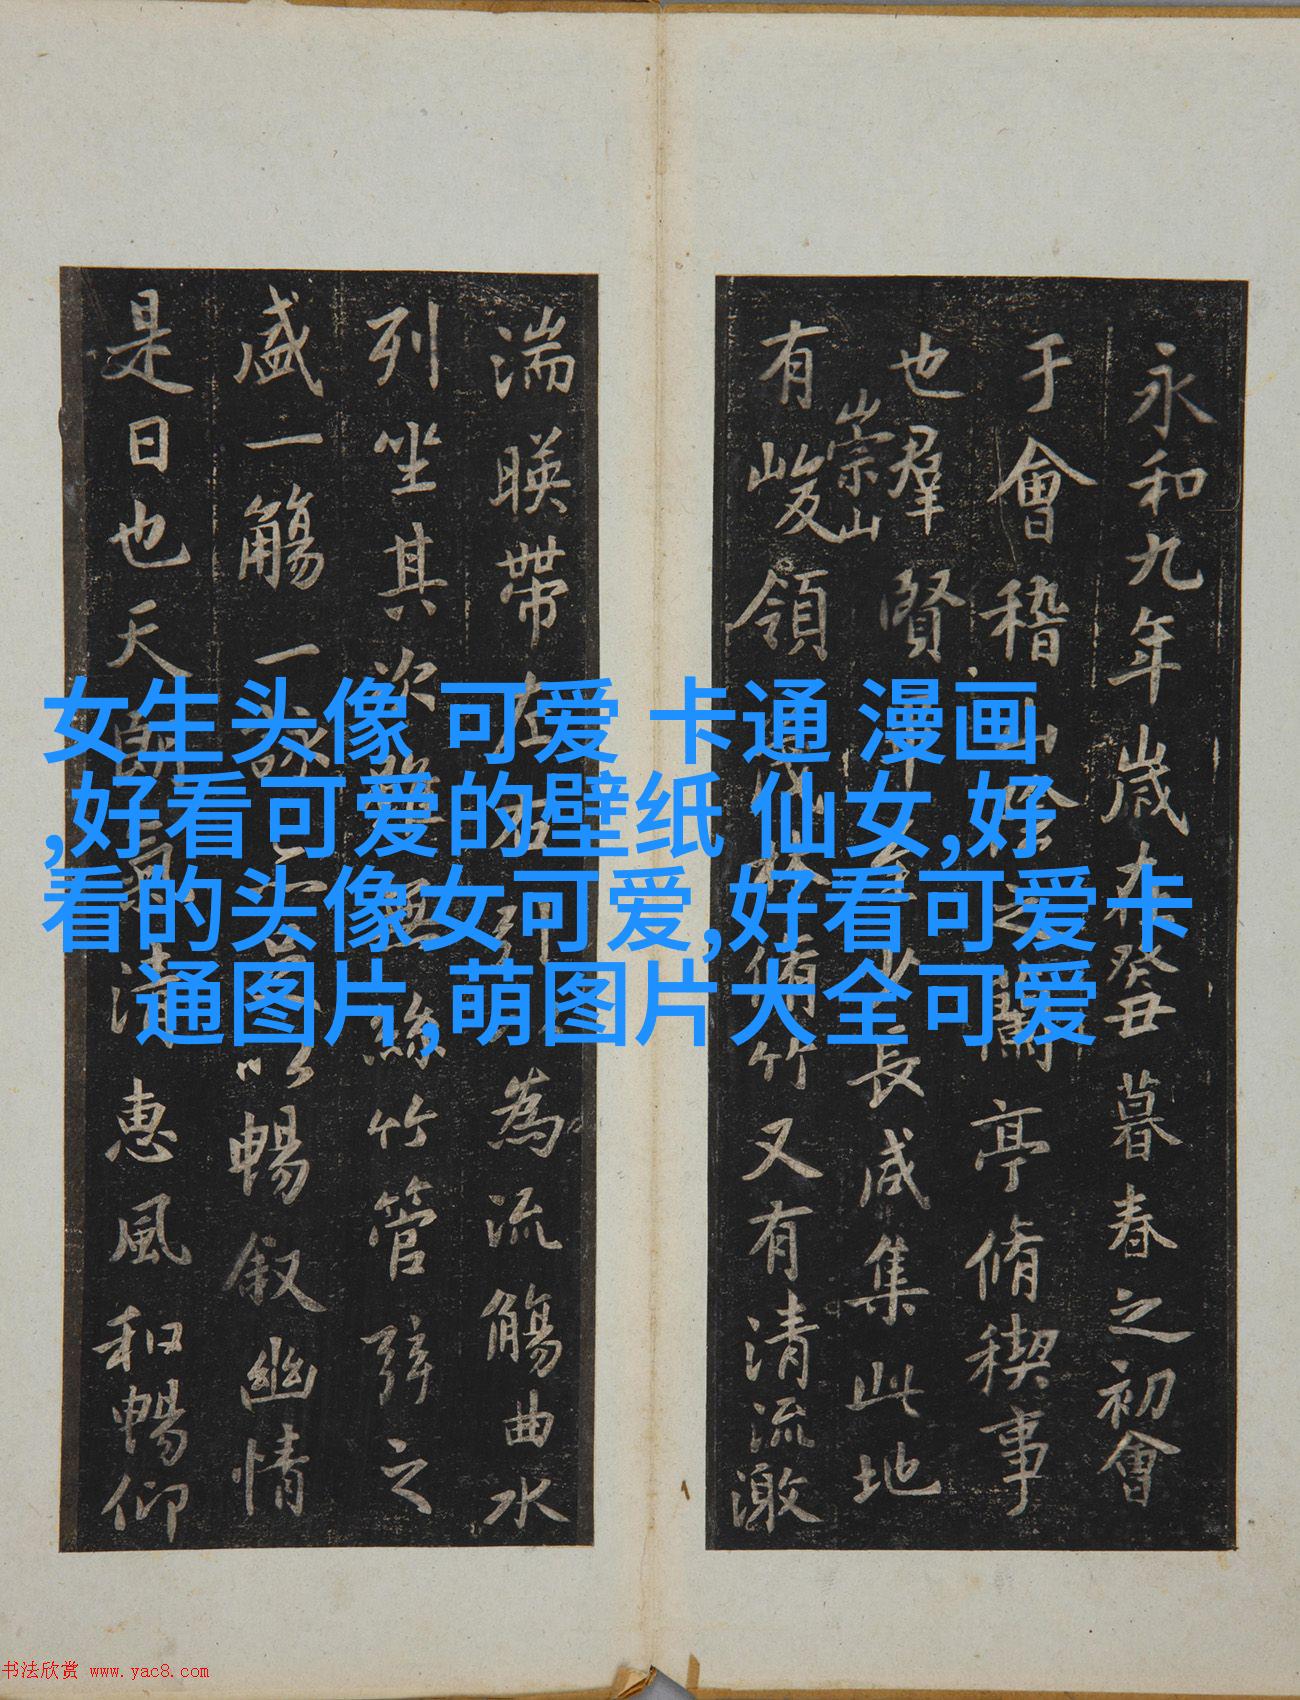 永和九年歲在癸丑暮春之初會
于會稽山陰之蘭亭脩禊事
也羣賢畢至少長咸集此地
崇山
有峻領茂林脩竹又有清流激
湍暎帶左右引以為流觴曲水
列坐其次雖無絲竹管弦之
盛一觴一詠亦足以暢叙幽情
是日也天朗氣清惠風和暢仰
女生头像 可爱 卡通 漫画
,好看可爱的壁纸 仙女,好
看的头像女可爱,好看可爱卡
通图片,萌图片大全可爱
书法欣赏 www.yac8.com